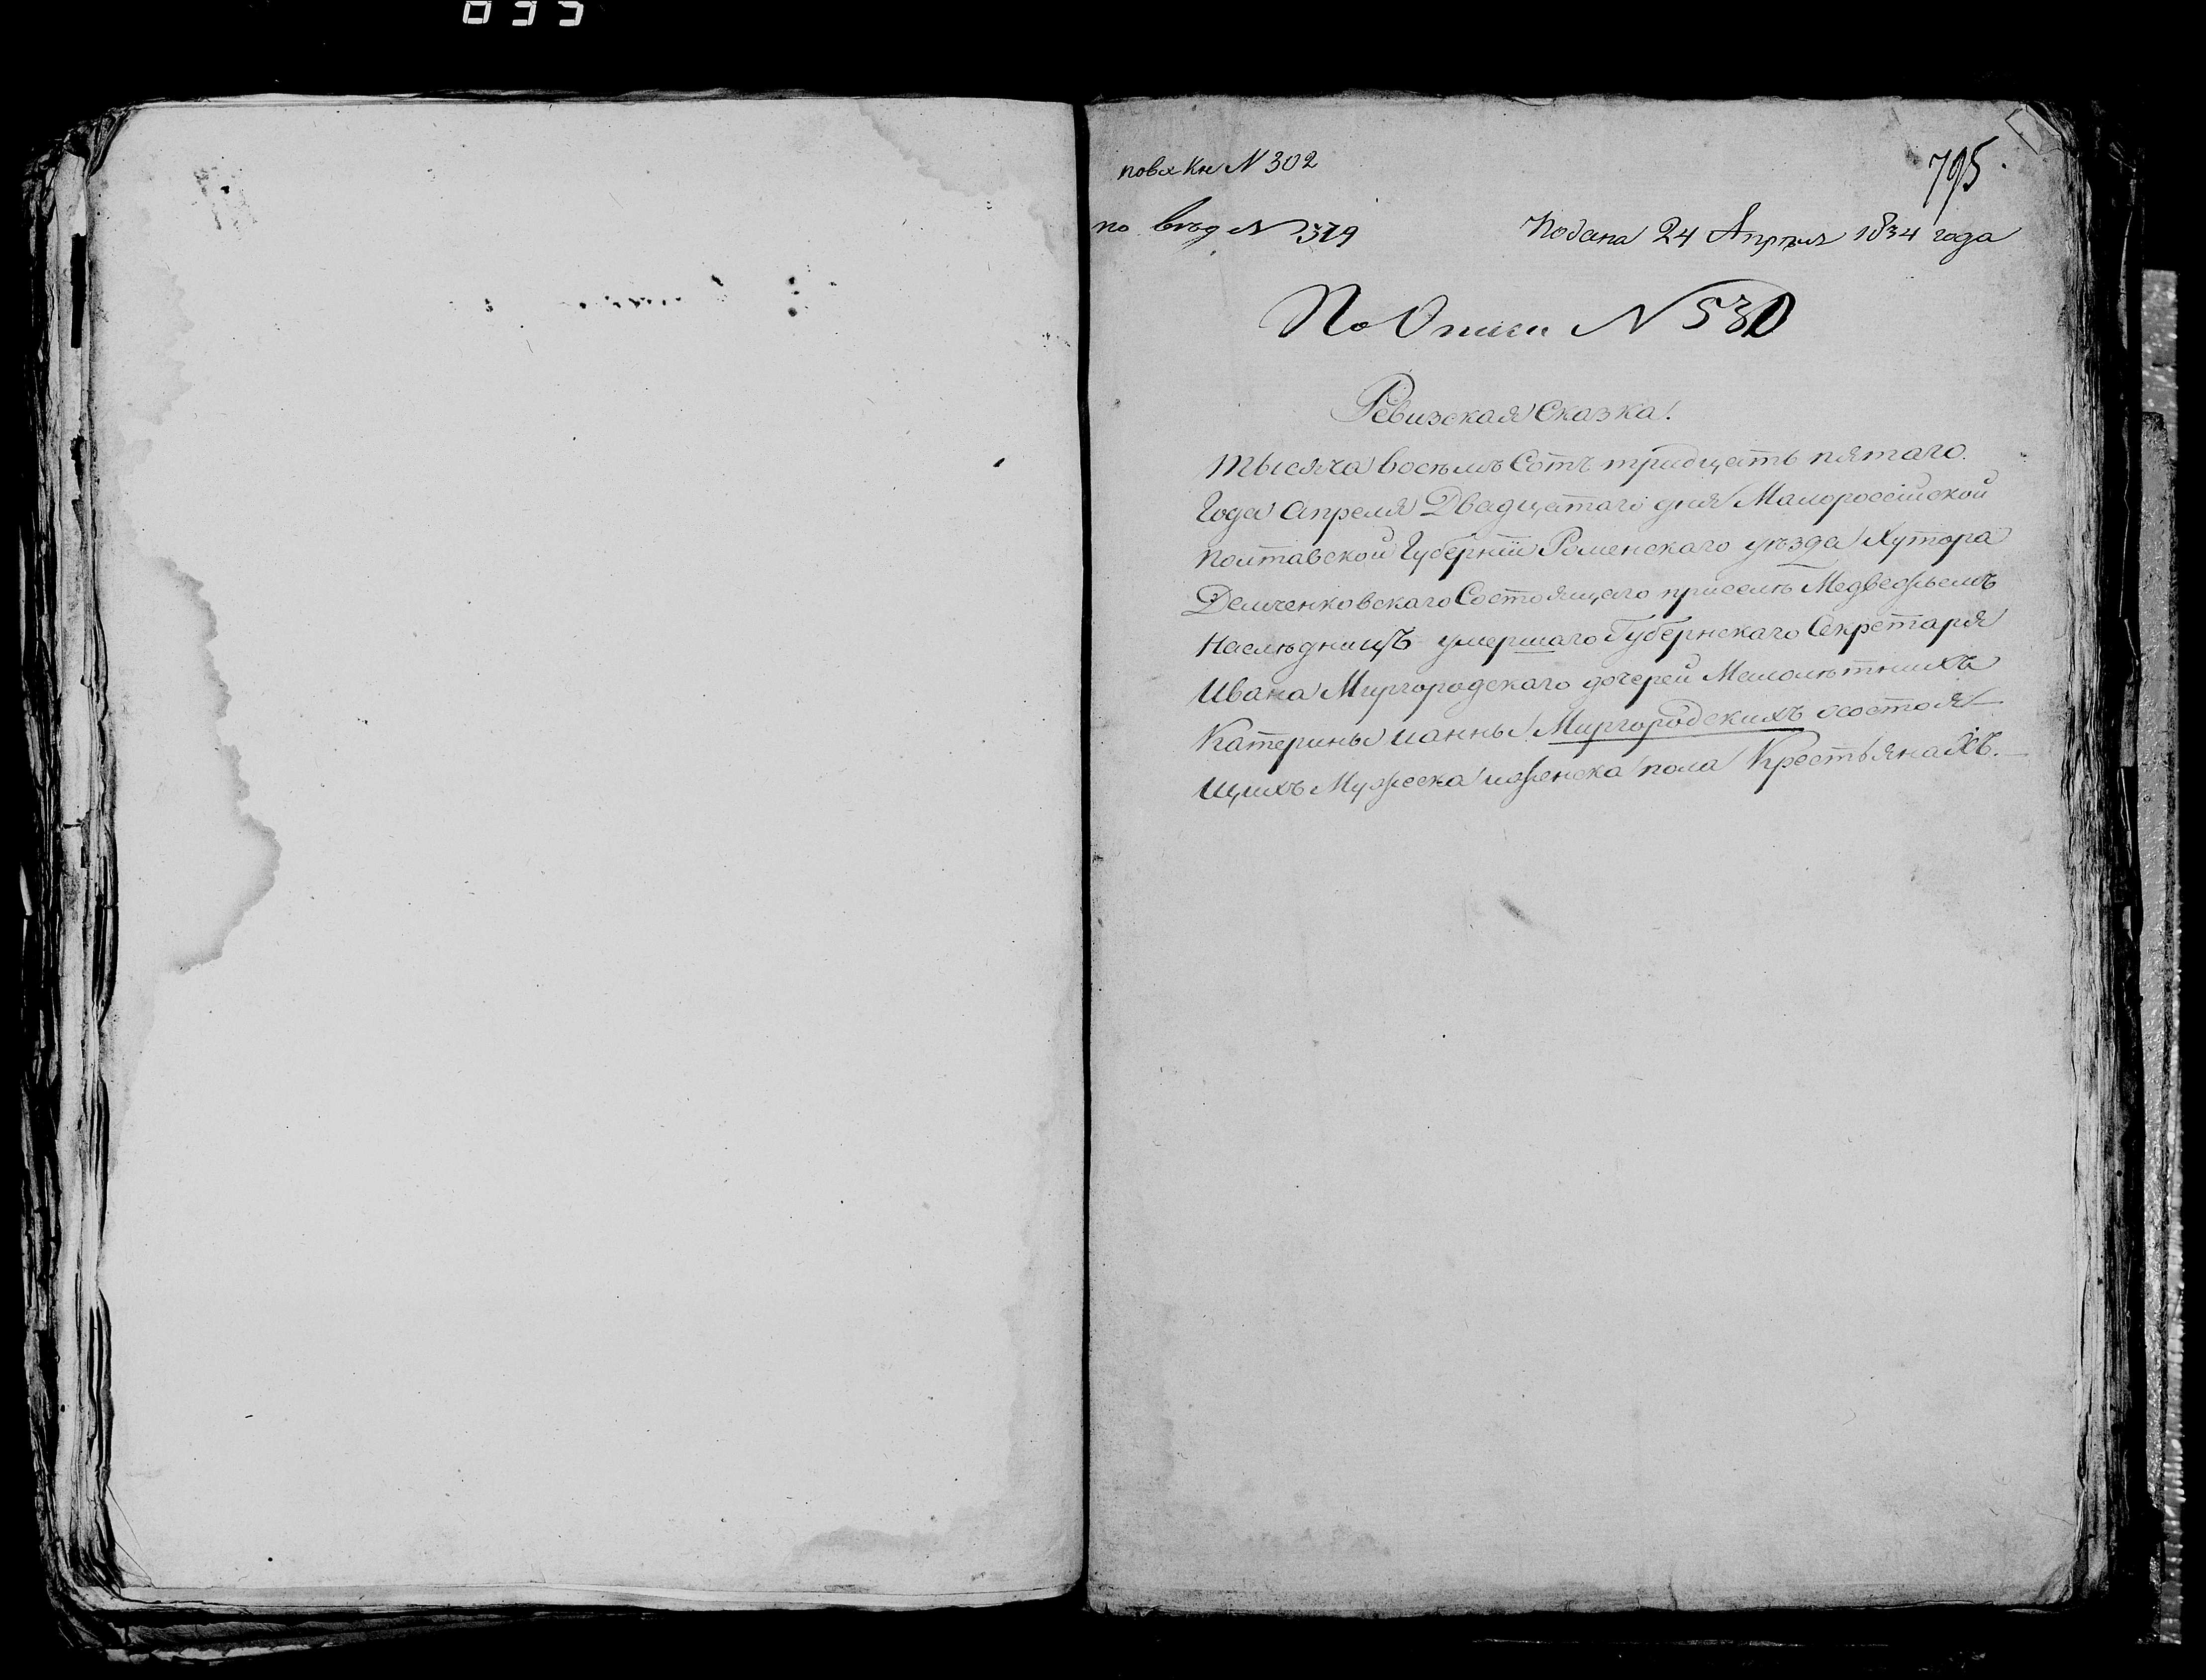 035
по вх Кн № 302
795.
по вход № 319
Подана 24 Апреля 1834 года
По Описи № 530
Ревизская Сказка.
тысяча восемь Сотъ тридцать пятаго
Года апреля Двадцатаго дня Малороссійской
Полтавской Губерніи Роменскаго уѣзда Хутора
Демченковскаго Состоящаго приселѣ Медвежьемъ
Наслѣдницъ умершаго Губернскаго Секретаря
Ивана Миргородскаго дочерей Малолѣтнихъ
Катерины ианны Миргородскихъ осостоя
щихъ Мужеска иженска пола Крестьянахъ.